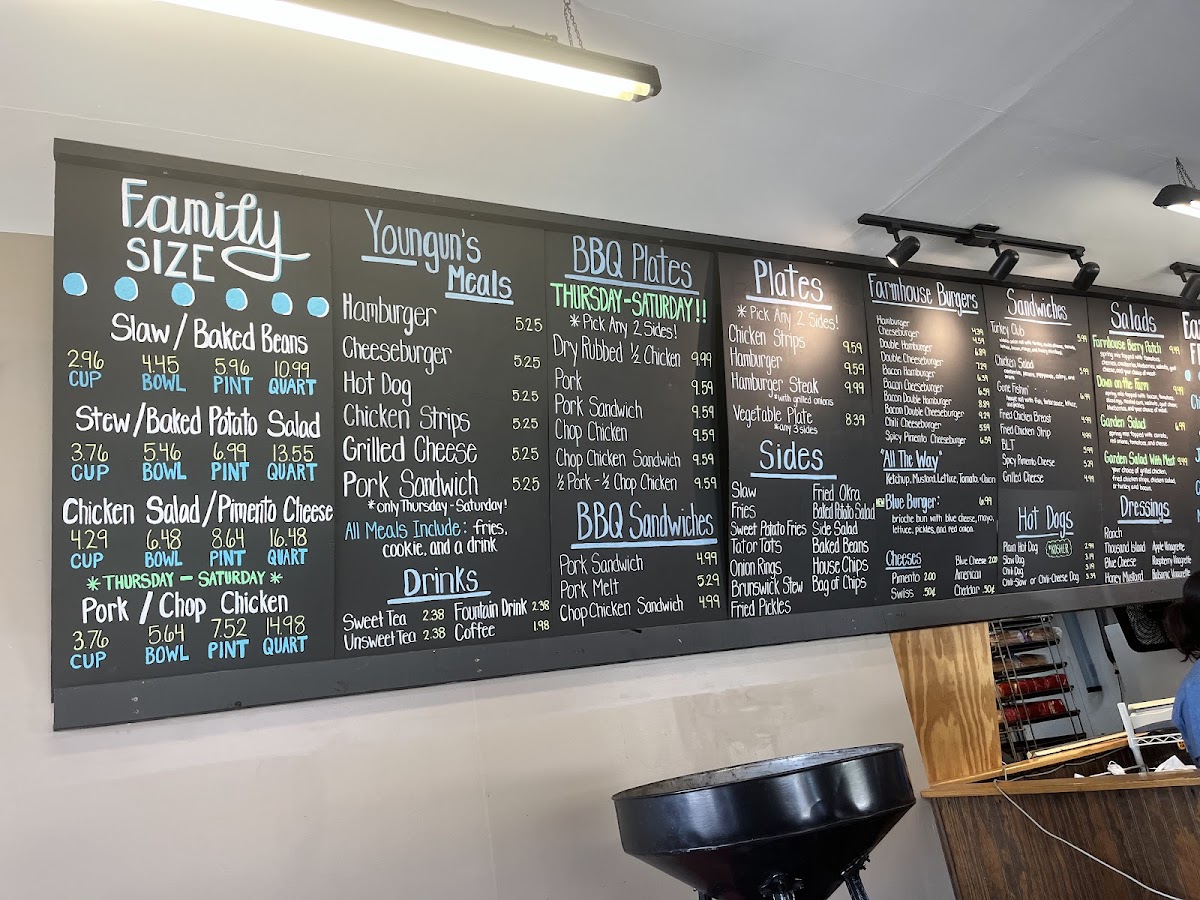 Family
SIZE
Slaw / Baked Beans
2.96 4.45 5.96 10.99
CUP BOWL PINT QUART
Stew/Baked Potato Salad
3.76 5.46 6.99 13.55
CUP BOWL PINT QUART
Chicken Salad/Pimento Cheese
4.29 6.48 8.64 16.48
CUP BOWL PINT QUART
*THURSDAY - SATURDAY*
Pork / Chop Chicken
3.76 5.64 7.52 14.98
CUP BOWL PINT QUART
Youngun's
Meals
Hamburger 5.25
Cheeseburger 5.25
Hot Dog 5.25
Chicken Strips 5.25
Grilled Cheese 5.25
Pork Sandwich 5.25
*only Thursday-Saturday!
All Meals Include: fries,
cookie, and a drink
Drinks
Sweet Tea 2.38 Fountain Drink 2.38
Unsweet Tea 2.38 Coffee 1.98
BBQ Plates
THURSDAY-SATURDAY!!
*Pick Any 2 Sides!
Dry Rubbed ½ Chicken 9.99
Pork 9.59
Pork Sandwich 9.59
Chop Chicken 9.59
Chop Chicken Sandwich 9.59
½ Pork - ½ Chop Chicken 9.59
BBQ Sandwiches
Pork Sandwich 4.99
Pork Melt 5.29
Chop Chicken Sandwich 4.99
Plates
*Pick Any 2 Sides!
Chicken Strips 9.59
Hamburger 9.59
Hamburger Steak 9.99
with grilled onions
Vegetable Plate 8.39
*any 3 sides
Sides
Slaw
Fries
Sweet Potato Fries
Tator Tots
Onion Rings
Brunswick Stew
Fried Pickles
Fried Okra
Baked Potato Salad
Side Salad
Baked Beans
House Chips
Bag of Chips
Farmhouse Burgers
Hamburger 4.39
Cheeseburger 4.59
Double Hamburger 6.89
Double Cheeseburger 7.29
Bacon Hamburger
Bacon Cheeseburger
Bacon Double Hamburger
Bacon Double Cheeseburger
Chili Cheeseburger
Spicy Pimento Cheeseburger 6.59
"All The Way"
Ketchup, Mustard, Lettuce, Tomato, Onion
NEW Blue Burger: 6.99
brioche bun with blue cheese, mayo,
lettuce, pickles, and red onion.
Cheeses
Pimento 2.00 Blue Cheese 2.00
Swiss .50¢ American
Cheddar .50¢
Sandwiches
Turkey Club
Chicken Salad 5.99
Gone Fishin'
Fried Chicken Breast 4.99
Fried Chicken Strip 4.99
BLT
Spicy Pimento Cheese 5.29
Grilled Cheese 4.99
Hot Dogs
Plain Hot Dog KOSHER
Slaw Dog
Chili Dog
Chili-Slaw or Chili-Cheese Dog
Salads
Farmhouse Berry Patch 9.49
Down on the Farm
Garden Salad 6.99
Garden Salad With Meat 9.49
Dressings
Ranch
Thousand Island
Blue Cheese
Honey Mustard
Apple Vinaigrette
Raspberry Vinaigrette
Balsamic Vinaigrette